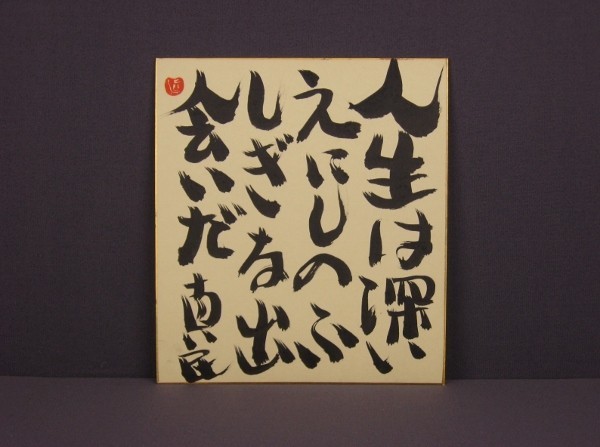 人生は深い
えにしのふ
しぎな出
会いだ 真民